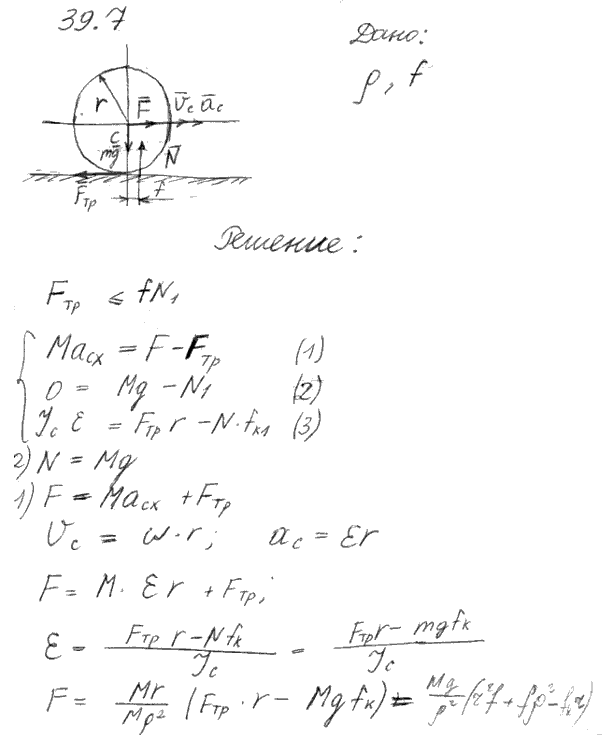 39.7
Дано:
ρ, f
r F̅ V̅c a̅c
C
mg̅ N̅
F̅тр f
Решение:
Fтр ⩽ fN₁
Macx = F - Fтр (1)
0 = Mg - N₁ (2)
Jc ε = Fтр r - N·fк₁ (3)
2) N = Mg
1) F = Macx + Fтр
Vc = ω·r; ac = εr
F = M·εr + Fтр;
ε = (Fтр r - Nfк)/Jc = (Fтр r - mgfк)/Jc
F = Mr/Mρ² (Fтр·r - Mgfк) = Mg/ρ² (r²f + fρ² - fкr)